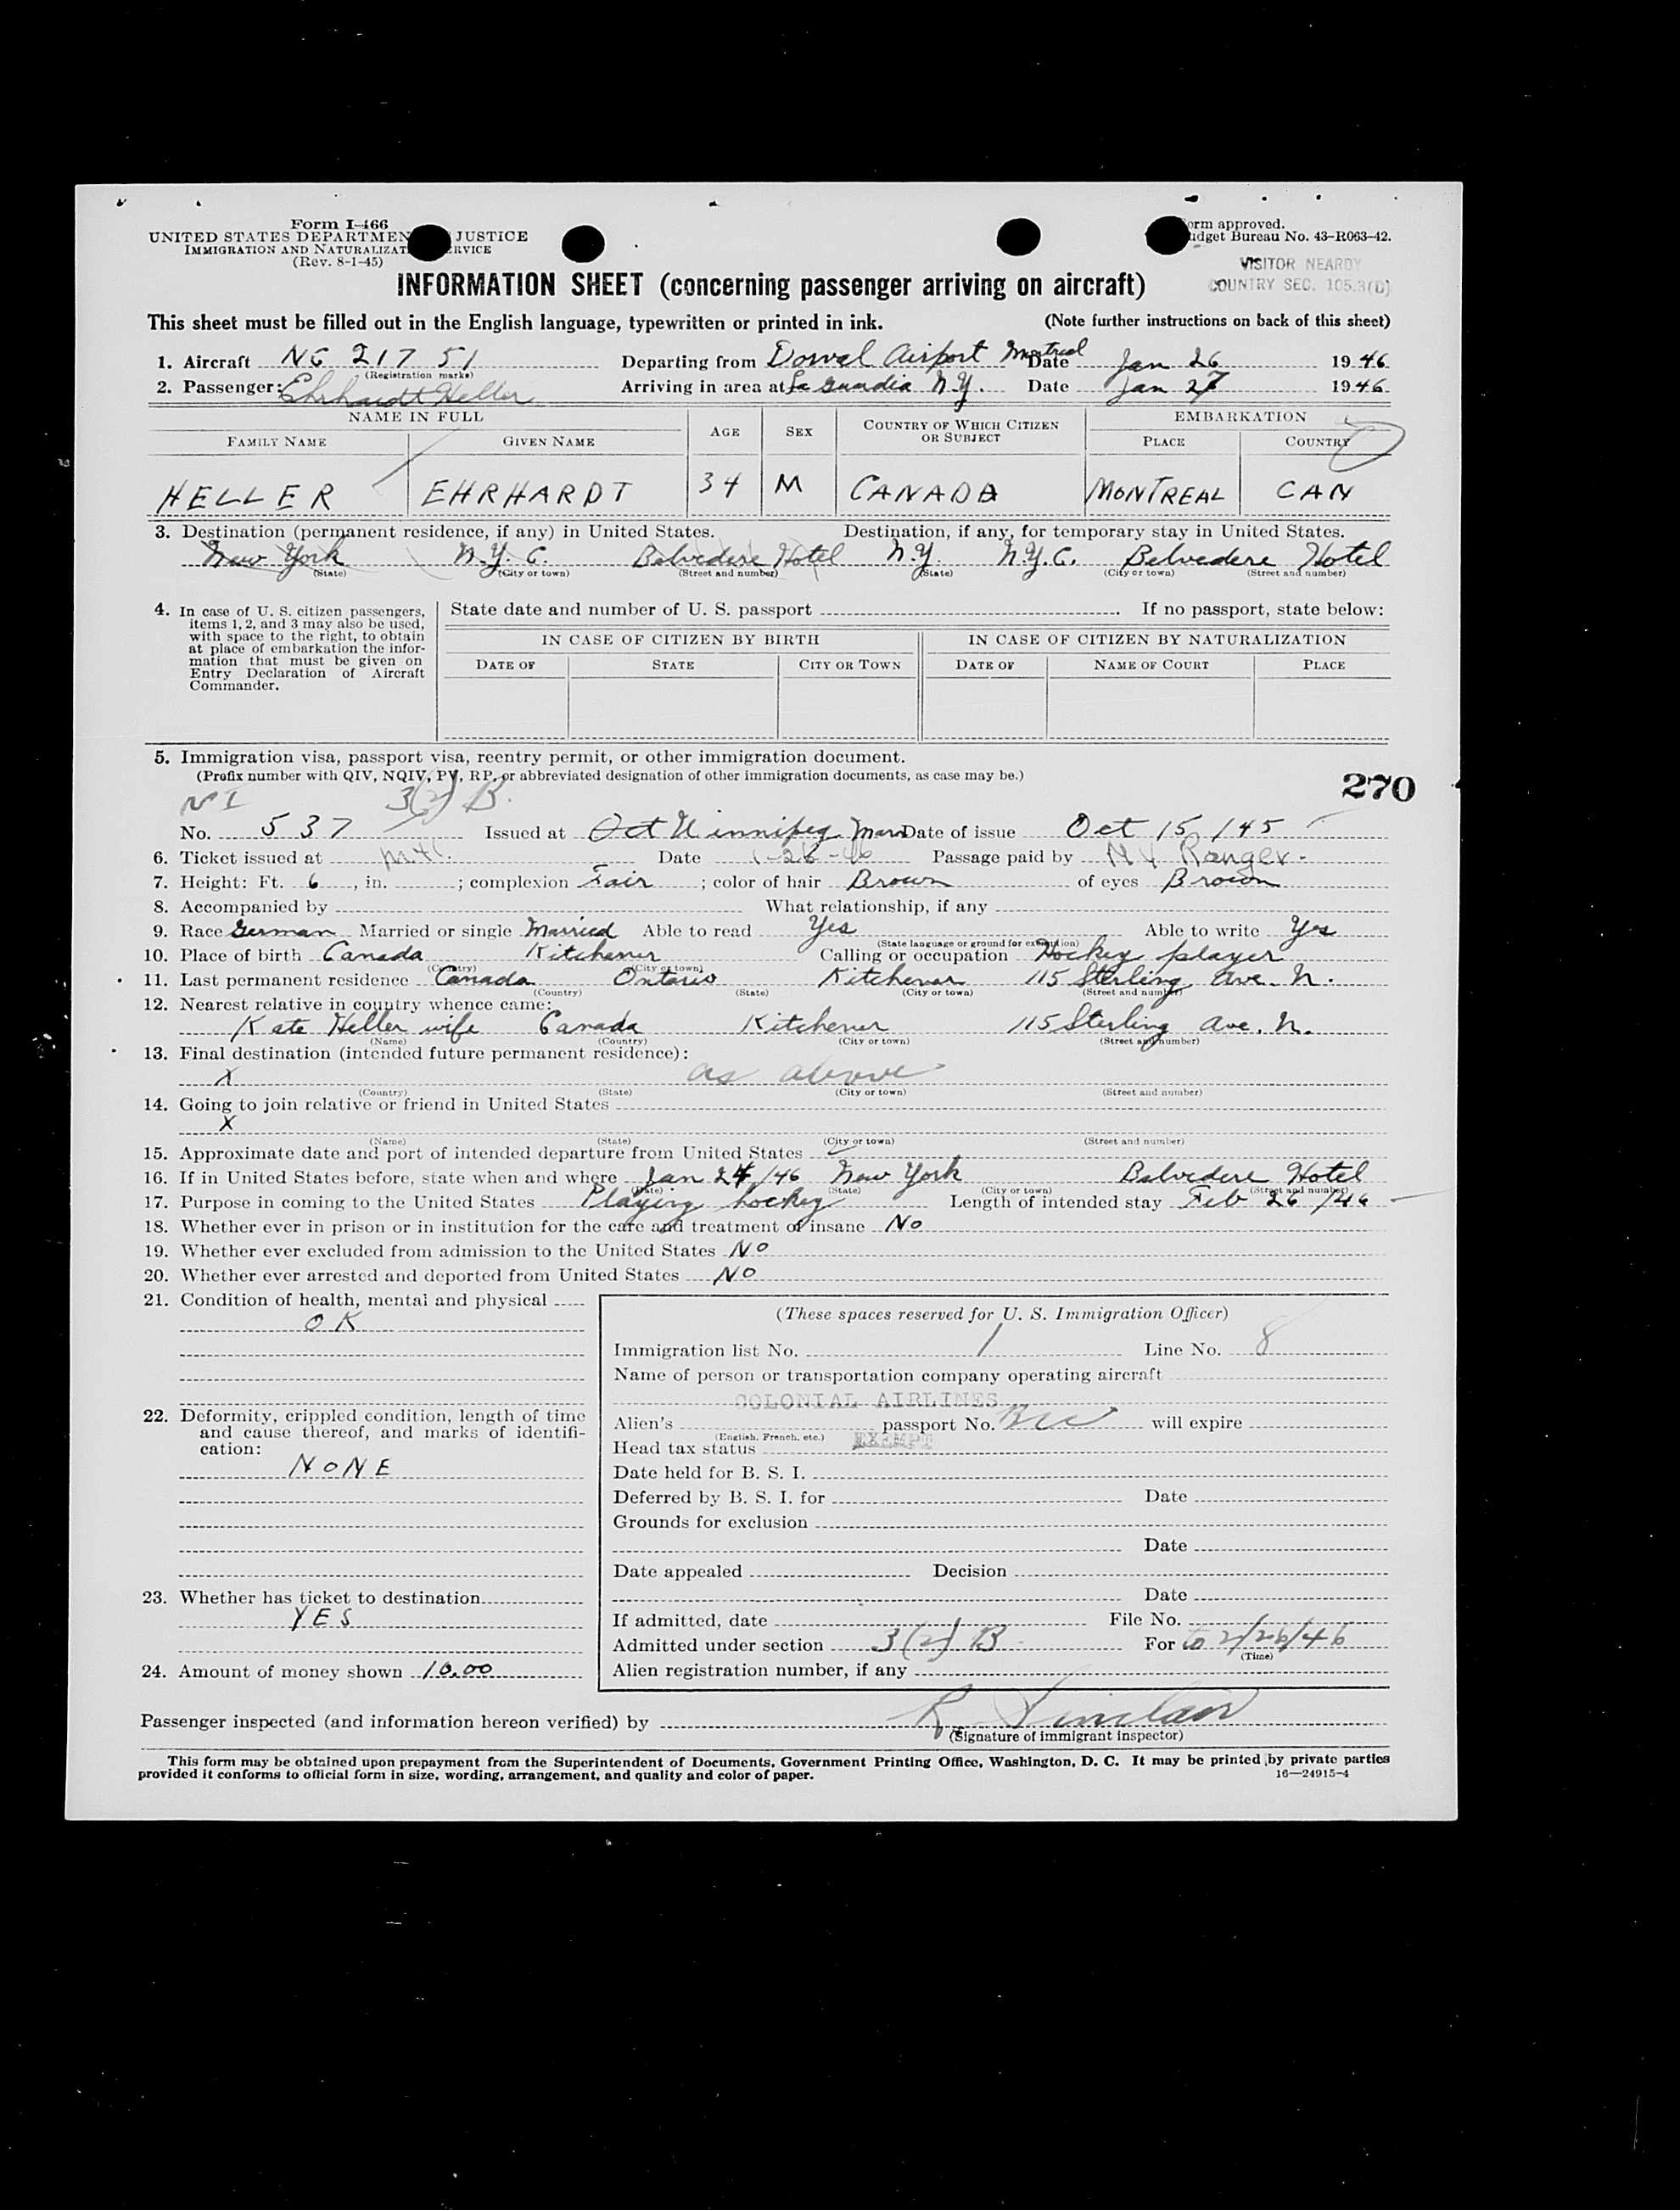 Form I-466
UNITED STATES DEPARTMEN JUSTICE
IMMIGRATION AND NATURALIZAT RVICE
(Rev. 8-1-45)
orm approved.
udget Bureau No. 43-R063-42.
VISITOR NEARBY
COUNTRY SEC. 105.3(D)
INFORMATION SHEET (concerning passenger arriving on aircraft)
This sheet must be filled out in the English language, typewritten or printed in ink. (Note further instructions on back of this sheet)
1. Aircraft NC 21751 Departing from Dorval Airport Montreal Date Jan 26 1946
(Registration marks)
2. Passenger: Ehrhardt Heller Arriving in area at La Guardia N.Y. Date Jan 27 1946
NAME IN FULL AGE SEX COUNTRY OF WHICH CITIZEN OR SUBJECT EMBARKATION
FAMILY NAME GIVEN NAME PLACE COUNTRY
HELLER EHRHARDT 34 M CANADA MONTREAL CAN
3. Destination (permanent residence, if any) in United States. Destination, if any, for temporary stay in United States.
New York N.Y.C. Belvedere Hotel N.Y. N.Y.C. Belvedere Hotel
(State) (City or town) (Street and number) (State) (City or town) (Street and number)
4. In case of U. S. citizen passengers, items 1, 2, and 3 may also be used, with space to the right, to obtain at place of embarkation the information that must be given on Entry Declaration of Aircraft Commander.
State date and number of U. S. passport If no passport, state below:
IN CASE OF CITIZEN BY BIRTH IN CASE OF CITIZEN BY NATURALIZATION
DATE OF STATE CITY OR TOWN DATE OF NAME OF COURT PLACE
5. Immigration visa, passport visa, reentry permit, or other immigration document.
(Prefix number with QIV, NQIV, PV, RP, or abbreviated designation of other immigration documents, as case may be.)
270
NI 3(2) B.
No. 537 Issued at Oct Winnipeg Man Date of issue Oct 15/45
6. Ticket issued at Mtl. Date 1-26-46 Passage paid by NY Ranger.
7. Height: Ft. 6, in. ; complexion Fair ; color of hair Brown of eyes Brown
8. Accompanied by What relationship, if any
9. Race German Married or single Married Able to read Yes Able to write Yes
(State language or ground for exemption)
10. Place of birth Canada Kitchener Calling or occupation Hockey player
(Country) (City or town)
11. Last permanent residence Canada Ontario Kitchener 115 Sterling Ave. N.
(Country) (State) (City or town) (Street and number)
12. Nearest relative in country whence came:
Kate Heller wife Canada Kitchener 115 Sterling Ave. N.
(Name) (Country) (City or town) (Street and number)
13. Final destination (intended future permanent residence):
X as above
(Country) (State) (City or town) (Street and number)
14. Going to join relative or friend in United States
X
(Name) (State) (City or town) (Street and number)
15. Approximate date and port of intended departure from United States
16. If in United States before, state when and where Jan 24/46 New York Belvedere Hotel
(Date) (State) (City or town) (Street and number)
17. Purpose in coming to the United States Playing hockey Length of intended stay Feb 26/46
18. Whether ever in prison or in institution for the care and treatment of insane No
19. Whether ever excluded from admission to the United States NO
20. Whether ever arrested and deported from United States NO
21. Condition of health, mental and physical
OK
22. Deformity, crippled condition, length of time and cause thereof, and marks of identification:
NONE
23. Whether has ticket to destination
YES
24. Amount of money shown 10.00
(These spaces reserved for U. S. Immigration Officer)
Immigration list No. 1 Line No. 8
Name of person or transportation company operating aircraft
COLONIAL AIRLINES
Alien's passport No. will expire
(English, French, etc.)
Head tax status EXEMPT
Date held for B. S. I.
Deferred by B. S. I. for Date
Grounds for exclusion
Date
Date appealed Decision
Date
If admitted, date File No.
Admitted under section 3(2) B For to 2/26/46
(Time)
Alien registration number, if any
Passenger inspected (and information hereon verified) by R Sinclair
(Signature of immigrant inspector)
This form may be obtained upon prepayment from the Superintendent of Documents, Government Printing Office, Washington, D. C. It may be printed by private parties
provided it conforms to official form in size, wording, arrangement, and quality and color of paper. 16—24915-4